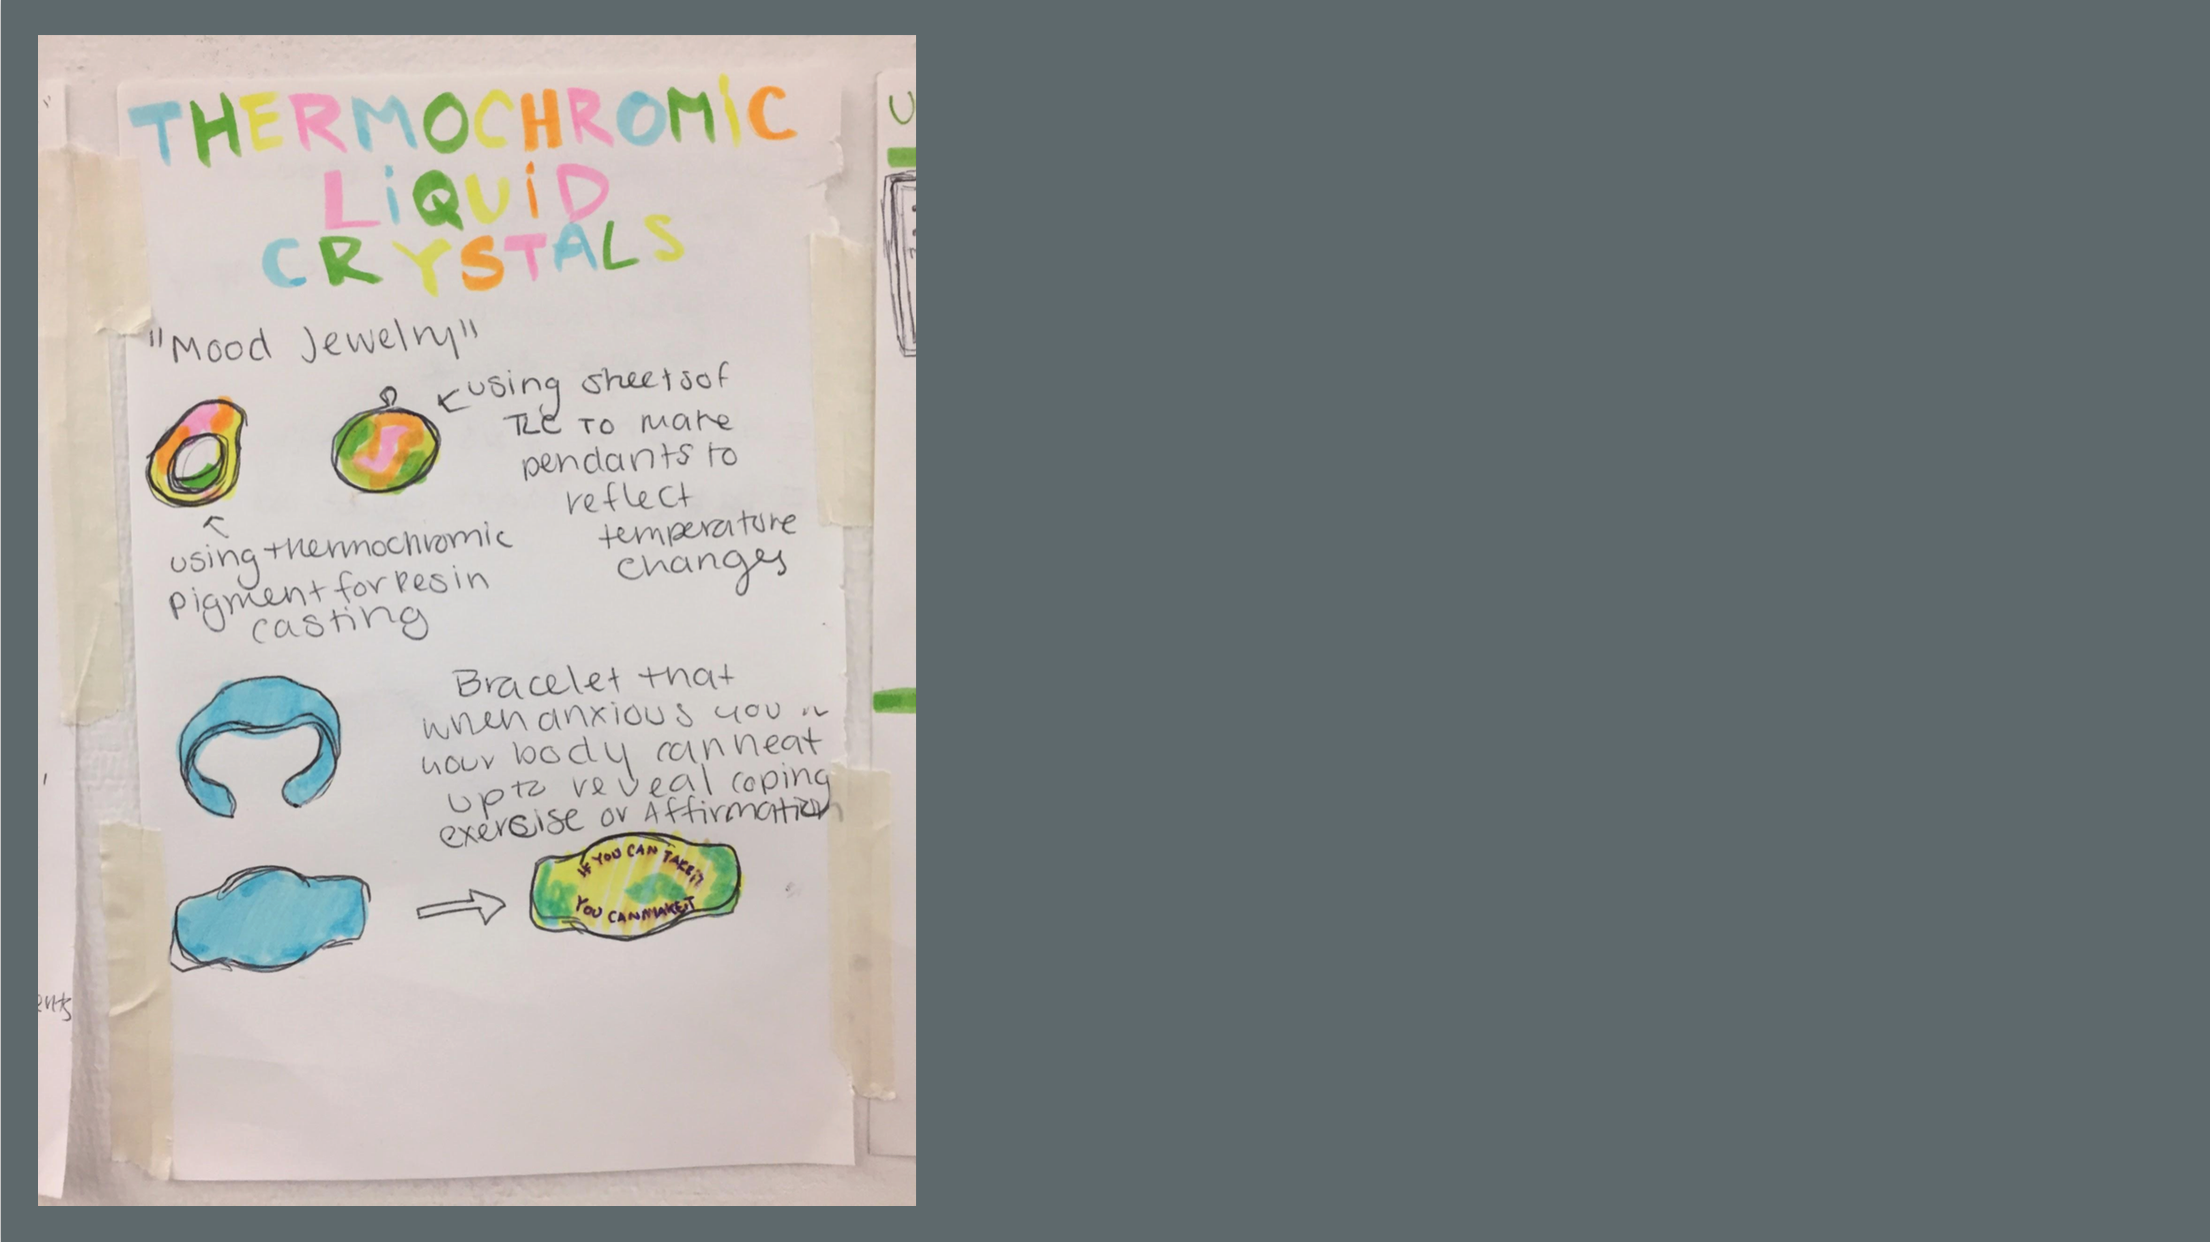 THERMOCHROMIC
LIQUID
CRYSTALS
"Mood Jewelry"
using sheets of
TLC TO make
pendants to
reflect
temperature
changes
using thermochromic
pigment for Resin
casting
Bracelet that
when anxious you
your body can heat
up to reveal coping
exercise or Affirmation
IF YOU CAN TAKE IT
YOU CAN MAKE IT
ents
U